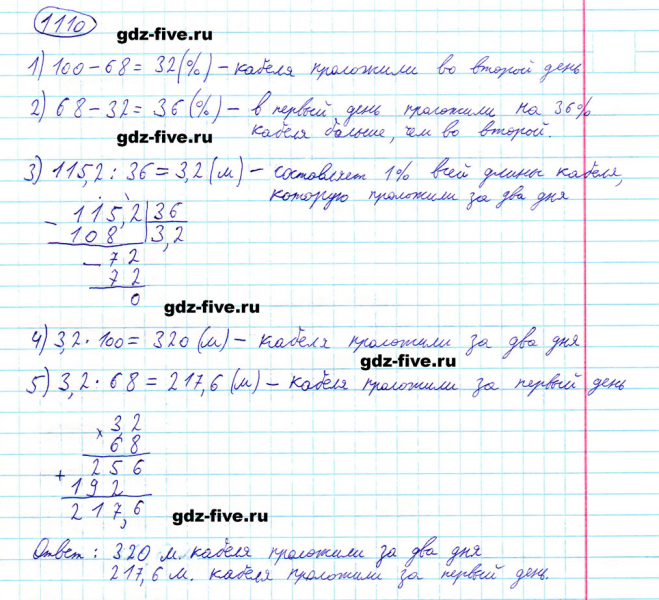 1110
gdz-five.ru
1) 100 - 68 = 32 (%) - кабеля проложили во второй день
2) 68 - 32 = 36 (%) - в первый день проложили на 36%
кабеля больше, чем во второй.
gdz-five.ru
3) 115,2 : 36 = 3,2 (м) - составляет 1% всей длины кабеля,
которую проложили за два дня
- 115,2 | 36
108 | 3,2
- 72
72
0
gdz-five.ru
4) 3,2 · 100 = 320 (м) - кабеля проложили за два дня
gdz-five.ru
5) 3,2 · 68 = 217,6 (м) - кабеля проложили за первый день
× 3,2
68
+ 256
192
217,6
gdz-five.ru
Ответ: 320 м кабеля проложили за два дня
217,6 м. кабеля проложили за первый день.